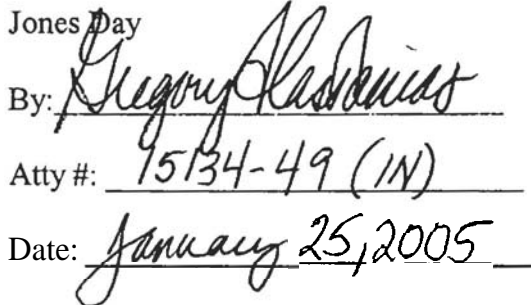 Jones Day
By: Gregory A. Castanias
Atty #: 15134-49 (IN)
Date: January 25, 2005